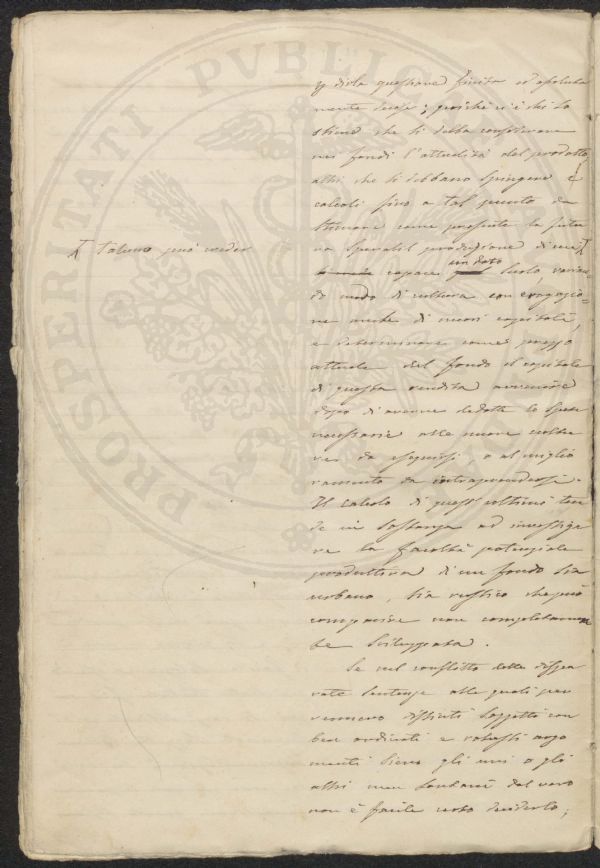 dirla questione finita ed assoluta
mente decisa; poiché vi è chi so
stiene che si debba considerare
nei fondi l'attualità del prodotto,
altri che si debbano spingere i
calcoli fino a tal punto da
stimare come presente la futu
ra sperabil produzione di cui
capace un dato suolo, varian
do modo di cultura con erogazio=
ne anche di nuovi capitali,
e determinare come prezzo
attuale del fondo il capitale
di questa rendita avvenire
dopo di averne dedotte le spese
necessarie alle nuove coltu
re da eseguirsi o al miglio
ramento da intraprendersi.
Il calcolo di quest'ultimi ten
de in sostanza ad investiga
re la facoltà potenziale
produttiva di un fondo sia
urbano, sia rustico che può
comparire non completamen
te sviluppata.
Se nel conflitto delle dispa
rate sentenze alle quali per
vennero distinti soggetti con
ben ordinati e robusti argo
menti sieno gli uni o gli
altri men lontani dal vero
non è facile cosa deciderlo;
Taluno può veder
PROSPERITATI PVBLICAE